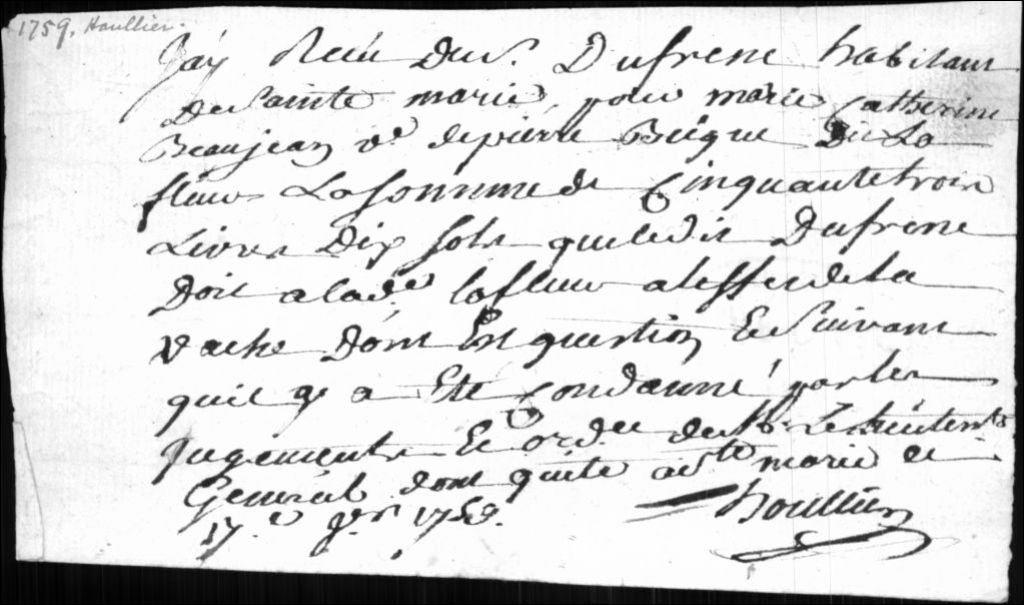 1759. Houllier
Jay Reçu du Sr. Dufrene habitant
De Sainte marie, pour marie Catherine
Beaujean ve depierre Beique Dit La
fleur La Somme de Cinquante trois
Livres Dix sols que ledit Dufrene
Doit a la de lafleur a leffet de la
Vache Dont Est question Et Suivant
quil y a Eté Condanné par les
Jugements Et ordre de Mr. Le Lieutent
Général dont quite a ste marie ce
17.e 1759.
houllier